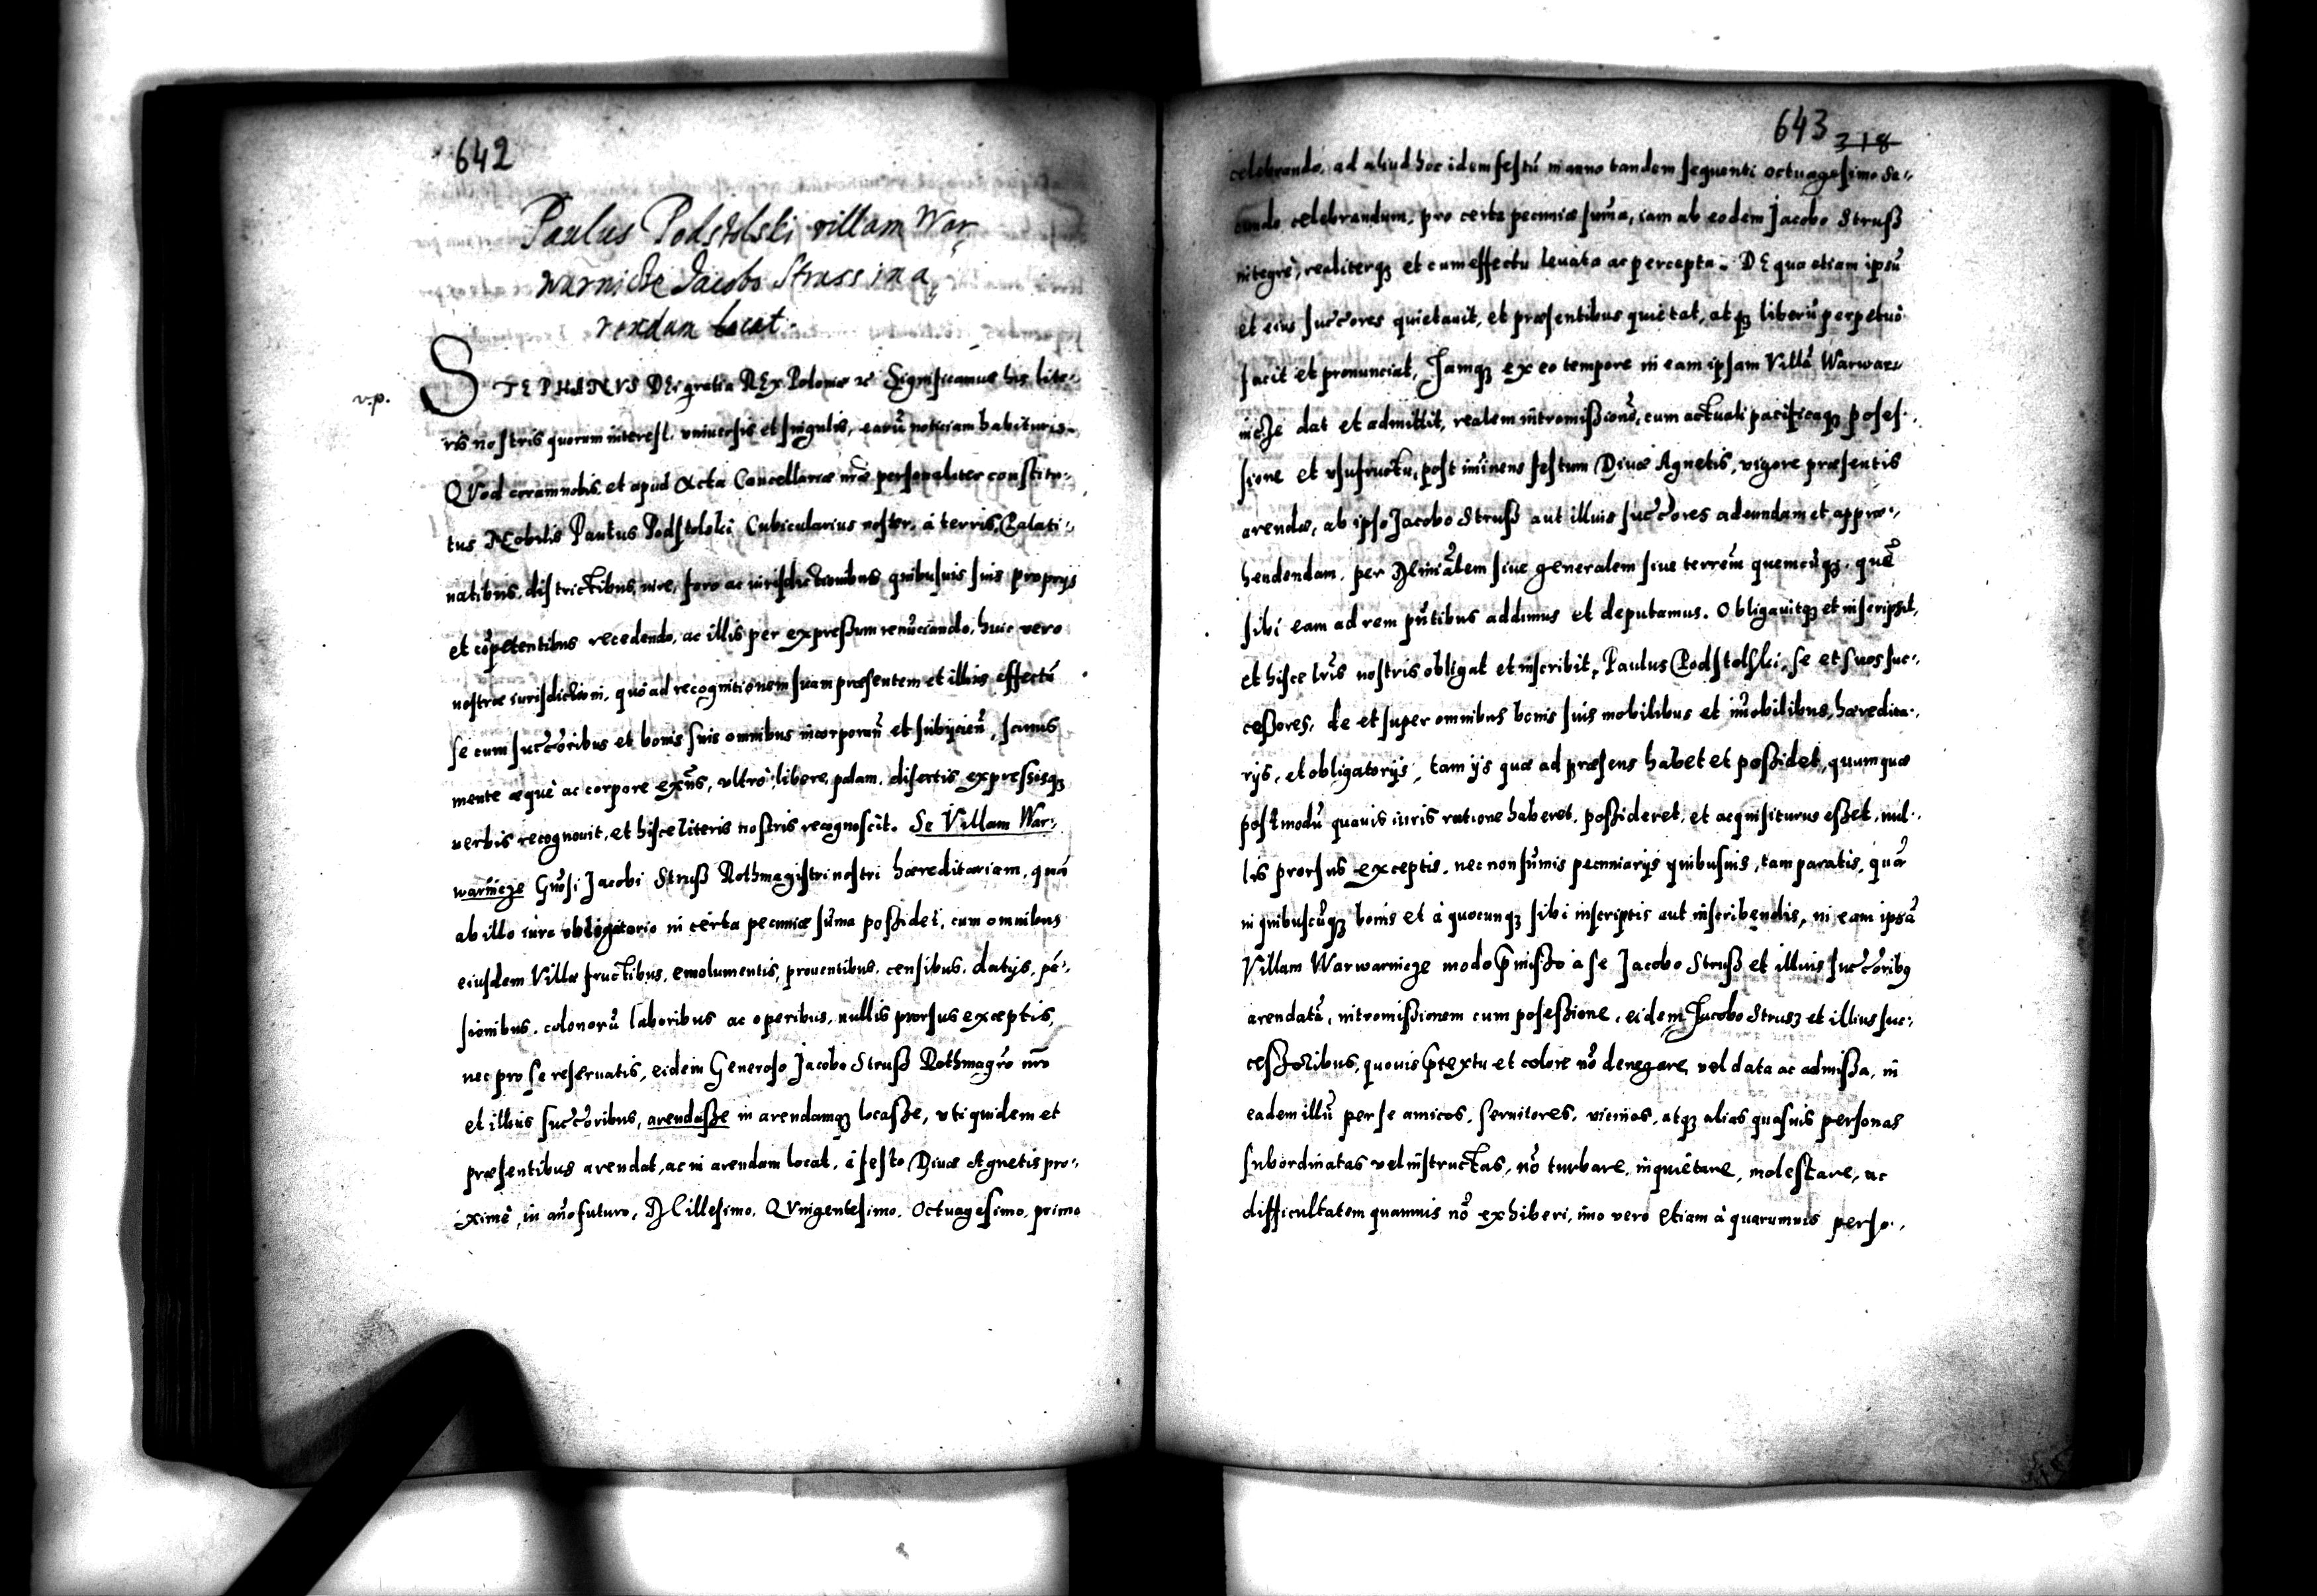 642
Paulus Podstolski villam War,
warnicze Jacobo Struss in a,
rendam locat.
v.p.
STEPHANVS DEi gratia REx Poloniæ &c Significamus his lite,,
ris nostris quorum interest, vniuersis et singulis, earū noticiam habituris.
QVod coram nobis et apud Acta Cancellariæ nr̄æ personaliter constitu,,
tus NEobilis Paulus Podstolski Cubicularius noster, à terris, Palati,,
natibus, districtibus, iure, foro ac iurisdictionibus quibusuis suis proprijs
et cōpetentibus recedendo, ac illis per expreßum renūciando, huic vero
nostræ iurisdictioni, quo ad recognitionem suam præsentem et illius effectū
se cum succ̄oribus et bonis suis omnibus incorporan̄ et subijcien̄, sanus
mente æquè ac corpore exn̄s, vltrò, libere, palam, disertis expressisq₃
verbis recognouit, et hisce literis nostris recognoscit. Se Villam War,,
warnicze Gn̄si Jacobi Struß Rothmagistri nostri hæreditariam, quā
ab illo iure obligatorio in certa pecuniæ sūma poßidet, cum omnibus
eiusdem Villæ fructibus, emolumentis, prouentibus, censibus, datijs, pē,,
sionibus, colonorū laboribus ac operibus, nullis prorsus exceptis,
nec pro se reseruatis, eidem Generoso Jacobo Struß Rothmagr̄o nr̄o
et illius succ̄oribus, arendaße in arendamq₃ locaße, vti quidem et
præsentibus arendat, ac in arendam locat, à festo Diuæ Agnetis pro,,
ximè, in an̄o futuro, Millesimo, QVuigentesimo, Octuagesimo, primo
643 318
celebrando, ad aliud hoc idem festū in anno tandem sequenti octuagesimo Se,,
cundo celebrandum, pro certa pecuniæ sūma, iam ab eodem Jacobo Struß
integrè, realiterq₃ et cum effectu leuata ac percepta. DE qua etiam ipsū
et eius succ̄ores quietauit, et præsentibus quietat, atq₃ liberū perpetuò
facit et pronunciat, Jamq₃ ex eo tempore in eam ipsam Villā Warwar,,
nicze dat et admittit, realem intromißionē, cum actuali pacificaq₃ poses,,
sione et vsufructu, post im̄inens festum Diuæ Agnetis, vigore præsentis
arendæ, ab ipso Jacobo Struß aut illius succ̄ores adeundam et appræ,,
hendendam, per Miniālem siue generalem siue terrēm quemcūq₃, quē
sibi eam ad rem pn̄tibus addimus et deputamus. Obligauitq₃ et inscripsit,
et hisce lr̄is nostris obligat et inscribit, Paulus Podstolski, se et suos suc,,
ceßores, de et super omnibus bonis suis mobilibus et im̄obilibus, hæredita,,
rijs, et obligatorijs, tam ijs quæ ad præsens habet et poßidet, quam quæ
postmodū quauis iuris ratione haberet, poßideret, et acquisiturus eßet, nul,,
lis prorsus exceptis, nec non sūmis pecuniarijs quibusuis, tam paratis, quā
in quibuscūq₃ bonis et à quocunq₃ sibi inscriptis aut inscribendis, in eam ipsā
Villam Warwarnicze modo p̄mißo à se Jacobo Struß et illius succ̄oribꝰ
arendatā, intromißionem cum poseßione, eidem Jacobo Strusz et illius suc,,
ceßoribus, quouis p̄textu et colore nō denegare, vel data ac admißa, in
eadem illū per se amicos, seruitores, vicinos, atq₃ alias quasuis personas
subordinatas vel instructas, nō turbare, inquietare, molestare, ac
difficultatem quamuis nō exhiberi, imo vero etiam à quarumuis perso,,